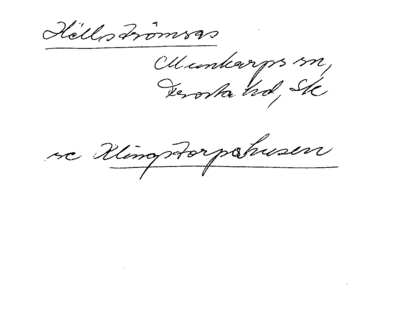 Hällströmsås
Munkarps sn,
Frosta hd, Sk
se Klingstorpshusen